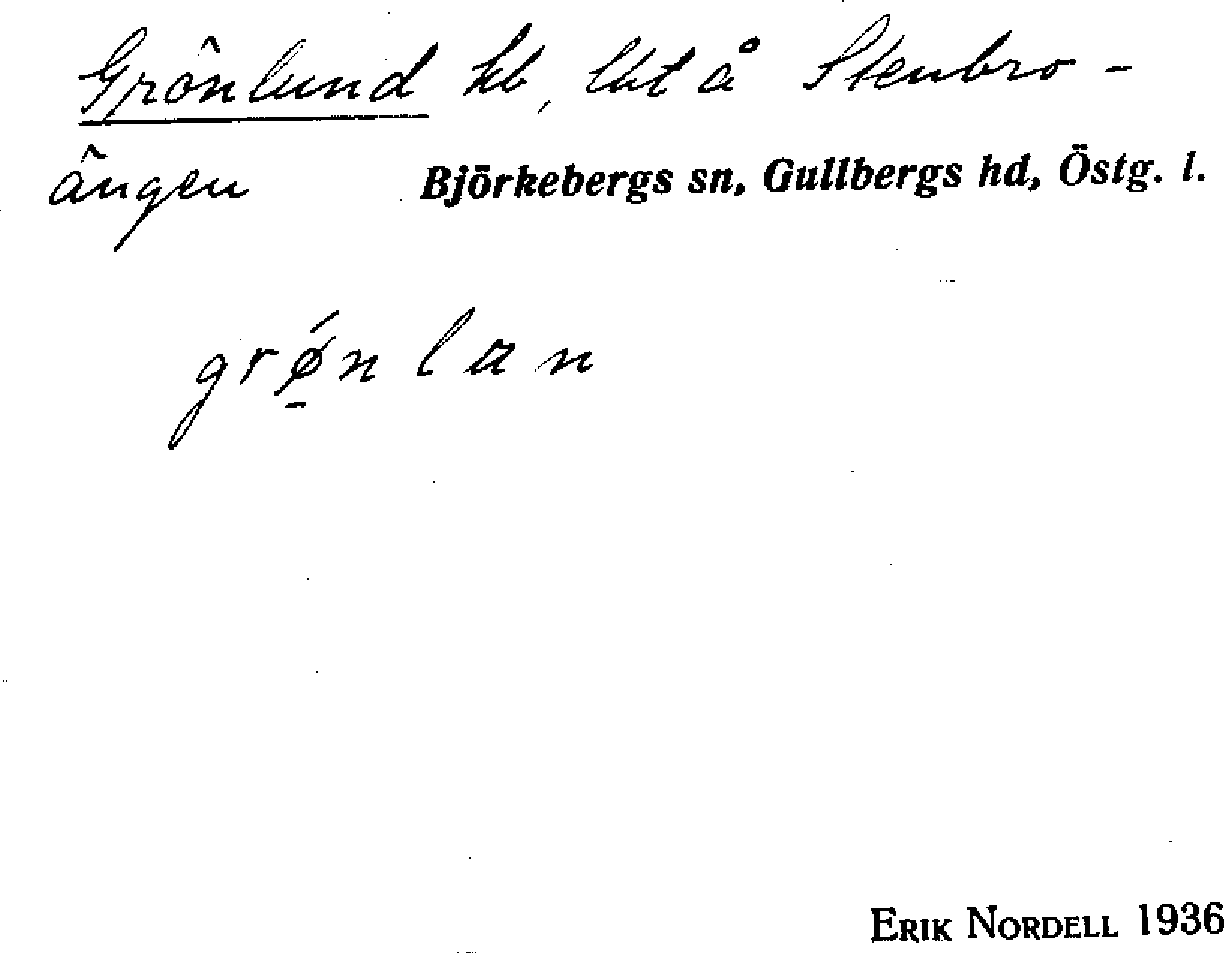 Grönlund hb, lht å Stenbro-
ängen Björkebergs sn, Gullbergs hd, Östg. l.
grǿ̠n lan
ERIK NORDELL 1936